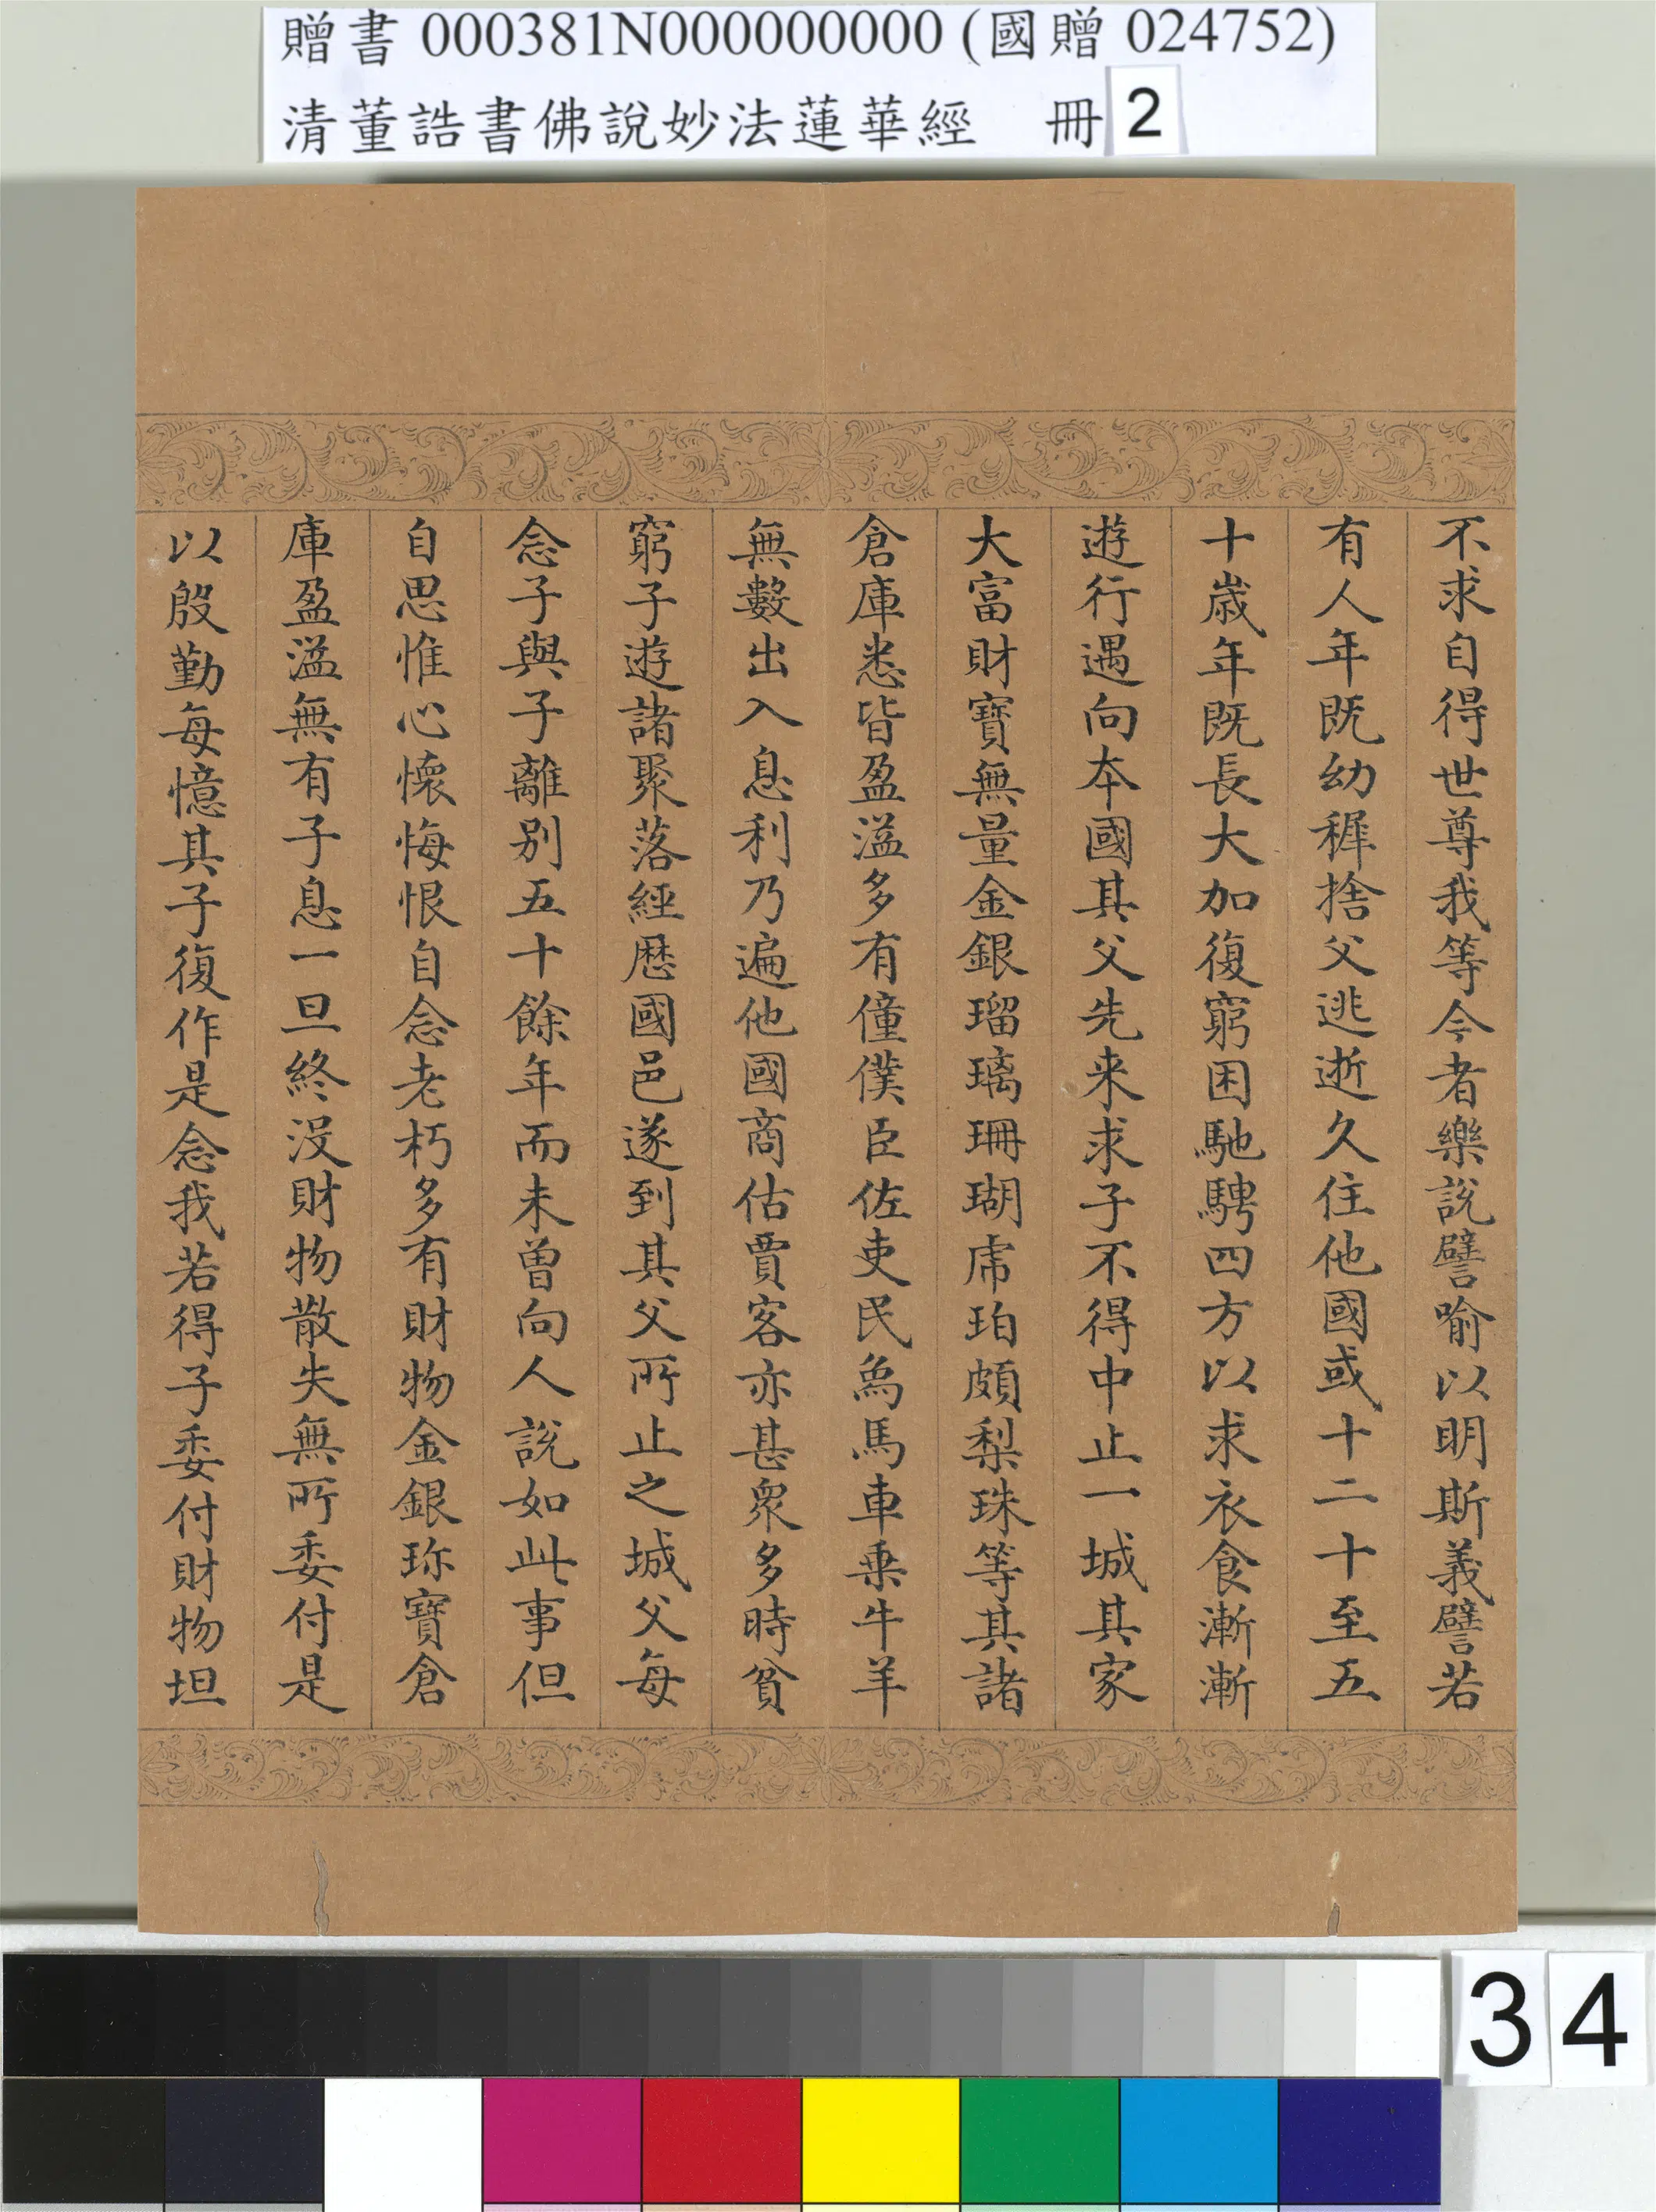 贈書 000381N000000000 (國贈 024752)
清董誥書佛說妙法蓮華經 冊 2
不求自得世尊我等今者樂說譬喻以明斯義譬若
有人年既幼稺捨父逃逝久住他國或十二十至五
十歲年既長大加復窮困馳騁四方以求衣食漸漸
遊行遇向本國其父先來求子不得中止一城其家
大富財寶無量金銀瑠璃珊瑚琥珀頗梨珠等其諸
倉庫悉皆盈溢多有僮僕臣佐吏民象馬車乗牛羊
無數出入息利乃遍他國商估賈客亦甚衆多時貧
窮子遊諸聚落經歷國邑遂到其父所止之城父每
念子與子離別五十餘年而未曾向人說如此事但
自思惟心懷悔恨自念老朽多有財物金銀珎寶倉
庫盈溢無有子息一旦終沒財物散失無所委付是
以殷勤每憶其子復作是念我若得子委付財物坦
34